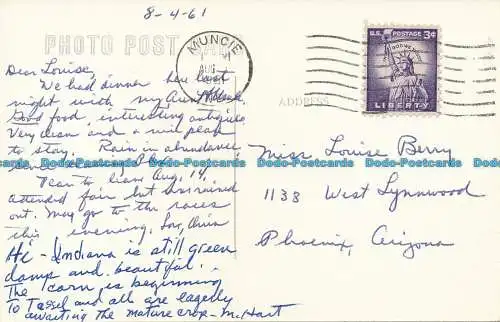 8-4-61
PHOTO POST CARD
Dear Louise,
We had dinner here last
night with my Aunt
Good food, interesting antiques.
Very clean and a nice place
to stay. Rain in abundance
Aug. 14,
attended fair but was rained
out. May go to the races
this evening. Love,
Hi - Indiana is still green
damp and beautiful.
The corn is beginning
To Tassel and all are eagerly
awaiting the mature crop - M. Hart
MUNCIE
AUG
U.S. POSTAGE 3¢
IN GOD WE TRUST
LIBERTY
ADDRESS
Miss Louise Berry
1138 West Lynnwood
Phoenix, Arizona
Dodo-Postcards Dodo-Postcards Dodo-Postcards Dodo-Postcards Dodo-Postcards